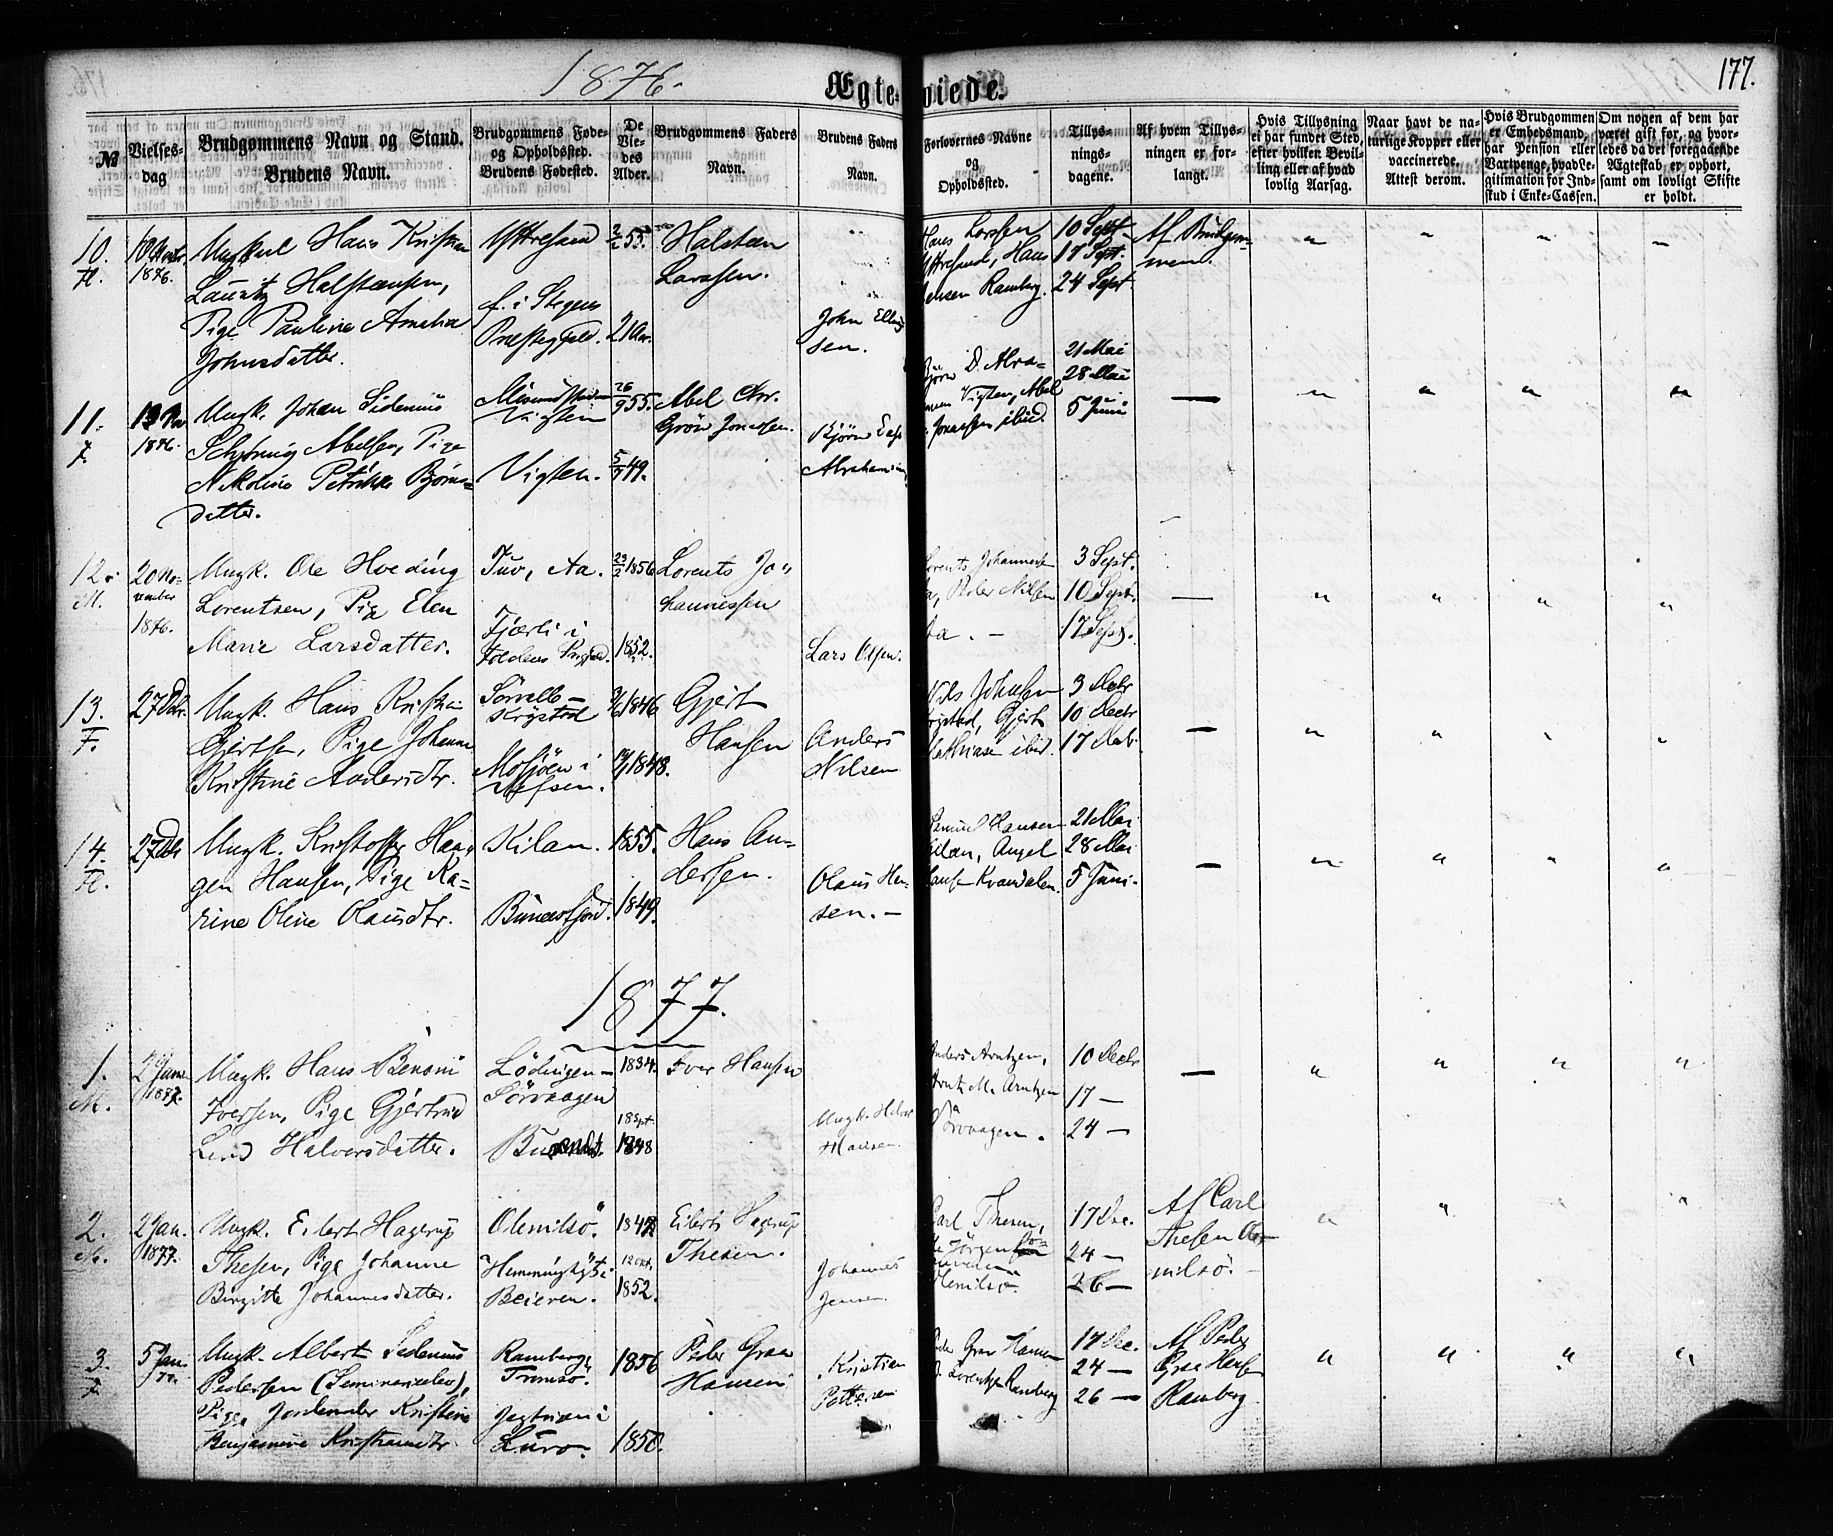 1876.
Ægteviede.
177.
№
Vielses-dag
Brudgommens Navn og Stand.
Brudens Navn.
Brudgommens Føde- og Opholdssted.
Brudens Fødested.
De Viedes Alder.
Brudgommens Faders Navn.
Brudens Faders Navn.
Forlovernes Navne og Opholdssted.
Tillysningsdagene.
Af hvem Tillysningen er forlangt.
Hvis Tillysning ei har fundet Sted, efter hvilken Bevilling eller af hvad lovlig Aarsag.
Naar havt de naturlige Kopper eller vaccinerede.
Attest derom.
Hvis Brudgommen er Embedsmand, har Pension eller Vartpenge, hvad Legitimation for Indskud i Enke-Cassen.
Om nogen af dem har været gift før, og hvorledes da det foregaaende Ægteskab er ophørt, samt om lovligt Skifte er holdt.
10.
1876.
Ungkarl Hans Kristian
Lauritz Halstensen,
Pige Pauline Amalia
Johnsdatter.
Yttresand
f. i Stegens
Præstegjeld.
2/2 53.
21 Aar.
Halsten
Larssen.
John
sen.
Hans Larssen
Yttresand, Hans
Ramberg.
10 Sept.
17 Sept.
24 Sept
Af Brudgom-
men.
11.
1876.
Ungk. Johan Sidenius
Schjøning Abelsen, Pige
Nikoline Petrikke Bjørns-
datter.
Vigten
Vigten.
26/9 55.
49.
Abel Chr.
Grøn Jonassen.
Bjørn
Abrahamsen
Bjørn D. Abra-
Vigten, Abel
Jonassen ibid.
21 Mai
28 Mai
5 Juni
12.
20 No-
vember
1876.
Ungk. Ole Hveding
Lorentsen, Pige Elen
Marie Larsdatter.
Tuv, Aa.
Fjærli i
Foldens
23/2 1856
1852.
Lorents Jo"
hannessen
Lars Olsen.
Lorents Johannesen
Peder Nilsen
Aa. -
3 Sept.
10 Sept.
17 Sept.
13.
F.
27 Decbr.
Ungk. Hans Kristian
Gjertsen, Pige Johanne
Kristine Andersdtr.
Krystad
Mosjøen i
Vefsen.
1846
1848.
Gjert
Hansen
Anders
Nilsen
Nils Johnsen
Krystad, Gjert
Mathiasen ibid.
3 Decbr
10 Decbr
17 Decb.
14.
27 Decb
Ungk. Kristoffer Haa"
gen Hansen, Pige Ka-
rine Oline Olausdtr.
Kilan.
Bunesfjord.
1855.
1849.
Hans An-
dersen.
Olaus Han-
sen. -
Samuel Hansen
Kilan, Angel
Hansen Kvandalen.
21 Mai
28 Mai
5 Juni.
1877.
1.
M.
2 Janr.
1877.
Ungk. Hans Benoni
Iversen, Pige Gjertrud
Lind Halvorsdatter.
Lødingen -
Sørvaagen
1834.
18 Sept
1848
Iver Hansen
Ungk. Halvor
Hansen
Anders Arntzen,
Arnt M. Arntzen
Sørvaagen.
10 Decbr
17 -
24 -
2.
M.
2 Jan.
1877.
Ungk. Eilert Hagerup
Thesen, Pige Johanne
Birgitte Johannesdatter.
Olenilsø.
i
Beieren.
1847
12 Okt.
1852.
Eilert Hagerup
Thesen.
Johannes
Jensen
Carl Thesen,
Ole Jørgen
Olenilsø.
17 Dec.
24 -
26 -
Af Carl
Thesen Ole-
nilsø. -
3.
F.
5 Jan.
77.
Ungk. Albert Sedenius
Pedersen (Seminarieelev),
Pige Jordender Kristine
Benjamine Kristiansdtr.
Ramberg,
Tromsø.
i
Lurø.
1856
1850.
Peder Graa
Hansen
Kristian
Peder Graa Hansen
Lorentzen Ramberg
17 Dec.
24 -
26 -
Af Peder
Graa Hansen
Ramberg.